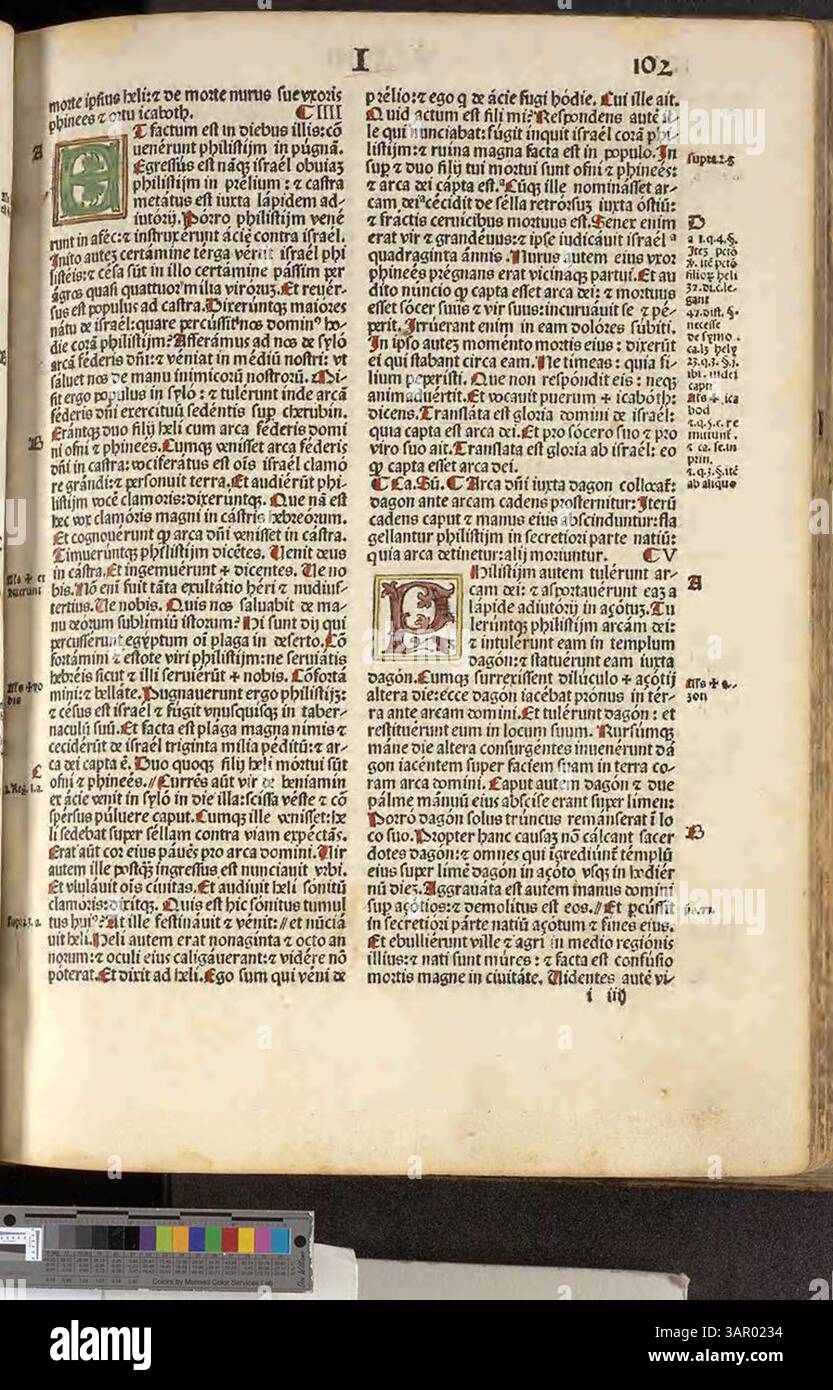 I
102
morte ipsius heli: ⁊ de morte nurus sue vxoris
phinees ⁊ ortu icaboth. ¶ IIII
A
ET factum est in diebus illis: cō
uenérunt philistijm in pugnā.
Egressus est nāqȝ israél obuiaȝ
philistijm in prélium: ⁊ castra
metátus est iuxta lápidem ad-
iutórij. Porro philistijm vené
runt in aféc: ⁊ instruxérunt áciē contra israél.
Inito auteȝ certámine térga vértit israél phi
listéis: ⁊ cęsa sūt in illo certámine pássim per
ágros quasi quattuor mília viróruȝ. Et reuér-
sus est populus ad castra. Dixerúntqȝ maiores
nátu de israél: quare percússit nos domin⁹ ho-
die corā philistijm? Afferámus ad nos de syló
arcā féderis dn̄i: ⁊ véniat in médiū nostri: vt
saluet nos de manu inimicorū nostrorū. Mi-
sit ergo populus in syló: ⁊ tulérunt inde arcā
féderis dn̄i exercituū sedéntis sup cherubin.
B
Erántqȝ duo filij heli cum arca féderis domi
ni ofni ⁊ phineés. Cumqȝ venisset arca féderis
dn̄i in castra: vociferátus est oīs israél clamó
re grándi: ⁊ personuit terra. Et audiérūt phi-
listijm vócē clamoris: dixerúntqȝ. Que nā est
hec vox clamóris magni in cástris hebreórum.
Et cognouérunt ꝙ arca dn̄i venísset in castra.
Timuerúntqȝ philistijm dicétes. Uenit deus
in castra. Et ingemuérunt + dicentes. Ue no
bis. Nō enī fuit tāta exultátio héri ⁊ nudius-
tertius. Ue nobis. Quis nos saluabit de ma-
nu deórum sublimiū istorum? Hi sunt dij qui
percussérunt egyptum oī plaga in deserto. Cō
fortámini ⁊ estote viri philistijm: ne seruiátis
hebréis sicut ⁊ illi seruiérūt + nobis. Cōfortá
mini: ⁊ belláte. Pugnauerunt ergo philistijȝ:
⁊ césus est israél ⁊ fugit vnusquisqȝ in taber-
náculū suū. Et facta est plága magna nimis ⁊
cecidérūt de israél triginta mília péditū: ⁊ ar-
ca dei capta ē. Duo quoqȝ filij heli mórtui sūt
C
ofni ⁊ phineés. // Currēs aūt vir de beniamin
ex ácie venit in syló in die illa: scissa véste ⁊ cō
spérsus púluere caput. Cumqȝ ille venisset: he
li sedebat super séllam contra viam expéctās.
Erat aūt cor eius páuēs pro arca domini. Uir
autem ille postqȝ ingressus est nunciauit vrbi.
Et vlulauit oīs ciuitas. Et audiuit heli sonitū
clamóris: dixitqȝ. Quis est hic sonitus tumul
tus hui⁹? At ille festináuit ⁊ vénit: // et nūciá
uit heli. Heli autem erat nonaginta ⁊ octo an
norum: ⁊ oculi eius caligáuerant: ⁊ vidére nō
póterat. Et dixit ad heli. Ego sum qui véni de
prélio: ⁊ ego q̄ de ácie fugi hódie. Cui ille ait.
Quid actum est fili mi? Respondens autē il-
le qui nunciabat: fúgit inquit israél corā phi-
listijm: ⁊ ruina magna facta est in populo. In
sup ⁊ duo filij tui mortui sunt ofni ⁊ phineés:
⁊ arca dei cápta est. Cūqȝ ille nominásset ar-
cam dei cécidit de sélla retrórsuȝ iuxta óstiū:
⁊ fractis ceruicibus mortuus est. Senex enim
erat vir ⁊ grandéuus: ⁊ ipse iudicáuit israél
quadraginta ánnis. Nurus autem eius vxor
phineés prégnans erat vicinaqȝ partui. Et au
dito nuncio ꝙ capta esset arca dei: ⁊ mortuus
esset sócer suus ⁊ vir suus: incuruáuit se ⁊ pé-
perit. Irrúerant enim in eam dolóres subiti.
In ipso auteȝ moménto mortis eius: dixérūt
ei qui stabant circa eam. Ne timeas: quia fi-
lium peperisti. Que non respóndit eis: neqȝ
animaduértit. Et vocauit puerum + icabóth:
dicens. Translata est gloria domini de israél:
quia capta est arca dei. Et pro sócero suo ⁊ pro
viro suo ait. Translata est gloria ab israél: eo
ꝙ capta esset arca dei.
¶ Ca. Sū. ¶ Arca dn̄i iuxta dagon collocat:
dagon ante arcam cadens prosternitur: Iterū
cadens caput ⁊ manus eius abscinduntur: fla
gellantur philistijm in secretiori parte natiū:
quia arca detinetur: alij moriuntur. ¶ V
PHilistijm autem tulérunt ar-
cam dei: ⁊ asportauérunt eaȝ a
lápide adiutórij in açótuȝ. Tu
lerúntqȝ philistijm arcam dei:
⁊ intulérunt eam in templum
dagón: ⁊ statuérunt eam iuxta
dagón. Cumqȝ surrexissent dilúculo + açótij
altera die: ecce dagón iacébat prónus in tér-
ra ante arcam domini. Et tulérunt dagón: et
restituérunt eum in locum suum. Rursúmqȝ
máne die altera consurgéntes inuenérunt da
gón iacentem super faciem suam in terra co-
ram arca domini. Caput autem dagón ⁊ due
pálme mánuū eius abscise erant super limen:
Porró dagón solus trúncus remánserat ī lo
co suo. Propter hanc causaȝ nō cálcant sacer
dotes dagón: ⁊ omnes qui īgrediūnt templū
eius super limē dagón in açóto vsqȝ in hodiér
nū dieȝ. Aggrauáta est autem manus domini
sup açótios: ⁊ demolitus est eos. // Et pércússit
in secretióri párte natiū açótum ⁊ fines eius.
Et ebulliérunt ville ⁊ agri in medio regiónis
illius: ⁊ nati sunt múres: ⁊ facta est confúsio
mortis magne in ciuitáte. Uidentes autē vi-
i iiij
supra.2.g
D
necesse
de symo.
Als + ica
bod
prin.
ab aliquo
A
Als + a-
zon
B
Colors by Munsell Color Services Lab
alamy
Image ID: 3AR0234
www.alamy.com